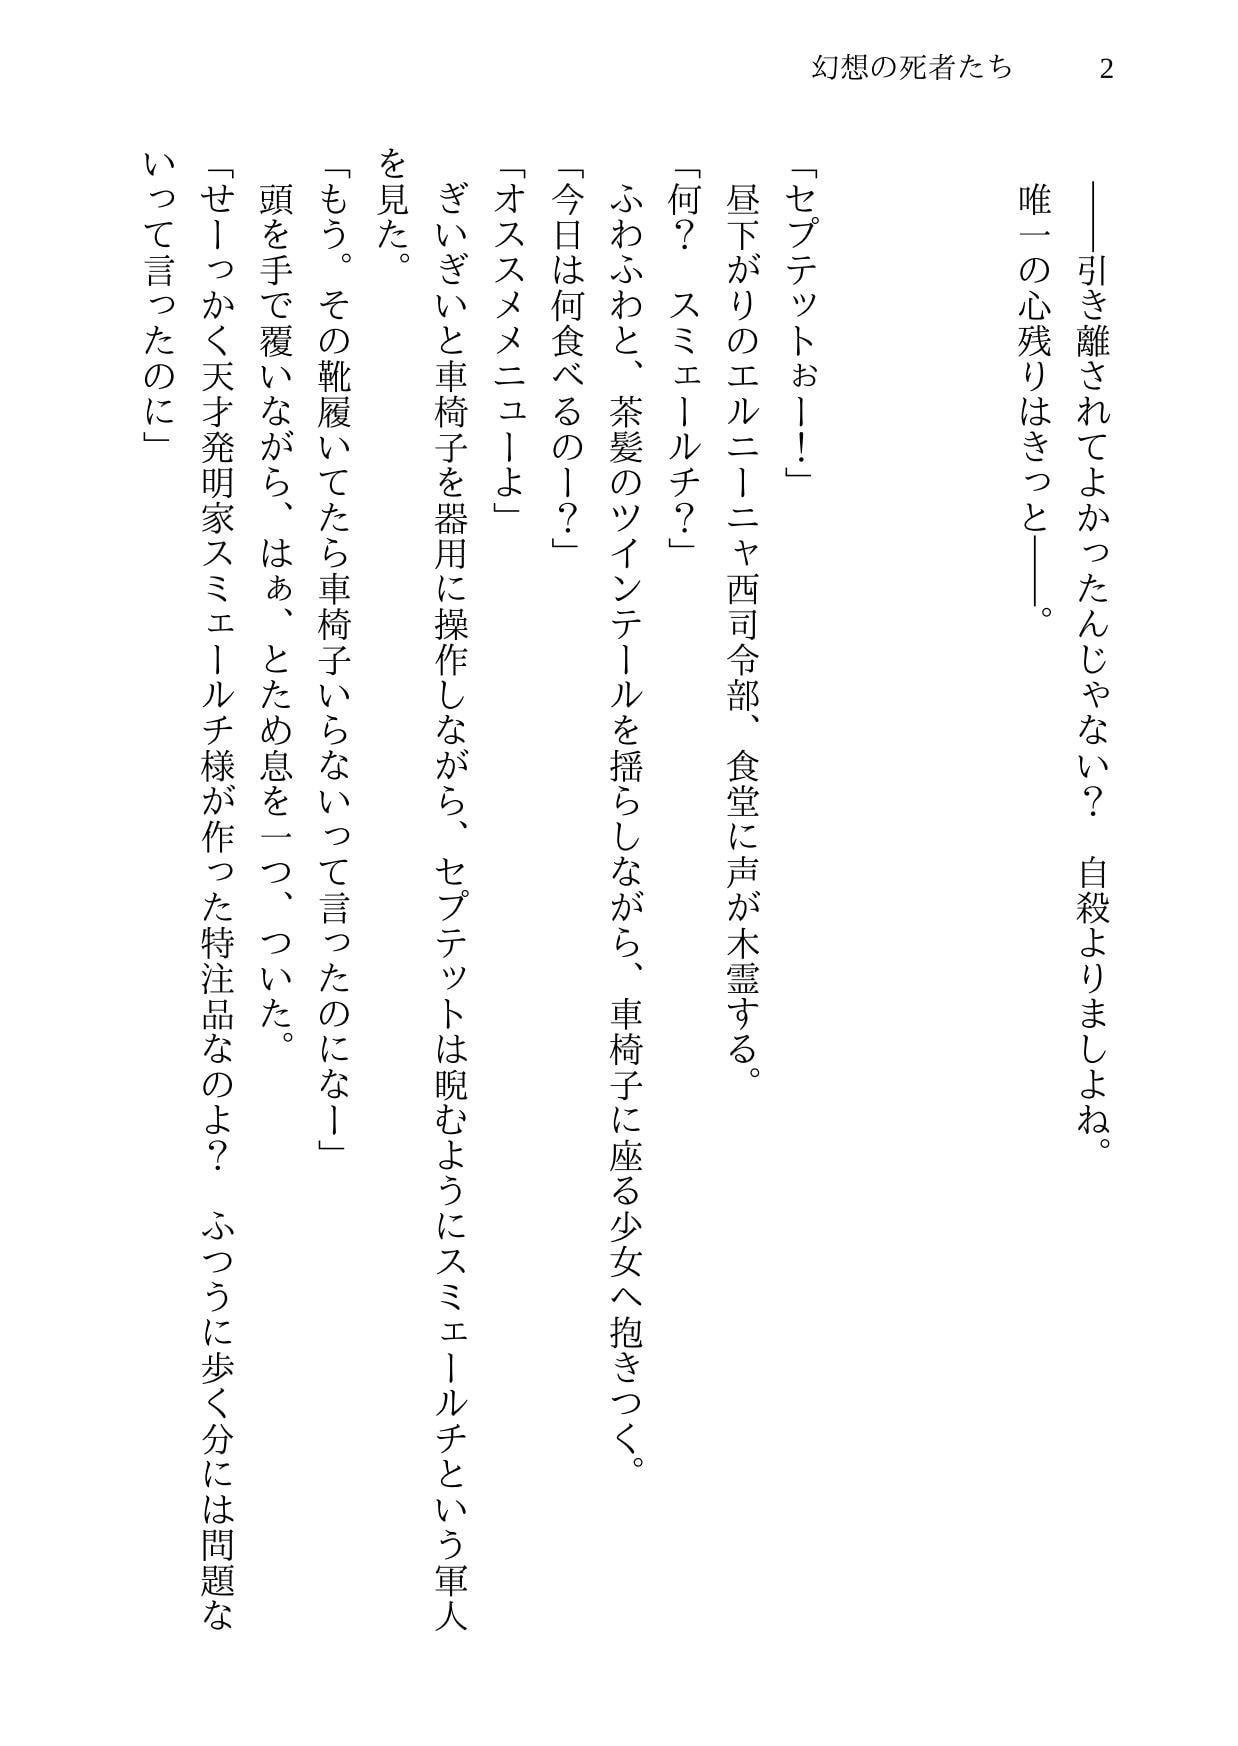 幻想の死者たち 2
――引き離されてよかったんじゃない？　自殺よりましよね。
唯一の心残りはきっと――。
「セプテットおー！」
昼下がりのエルニーニャ西司令部、食堂に声が木霊する。
「何？　スミェールチ？」
ふわふわと、茶髪のツインテールを揺らしながら、車椅子に座る少女へ抱きつく。
「今日は何食べるのー？」
「オススメメニューよ」
ぎいぎいと車椅子を器用に操作しながら、セプテットは睨むようにスミェールチという軍人
を見た。
「もう。その靴履いてたら車椅子いらないって言ったのになー」
頭を手で覆いながら、はぁ、とため息を一つ、ついた。
「せーっかく天才発明家スミェールチ様が作った特注品なのよ？　ふつうに歩く分には問題な
いって言ったのに」